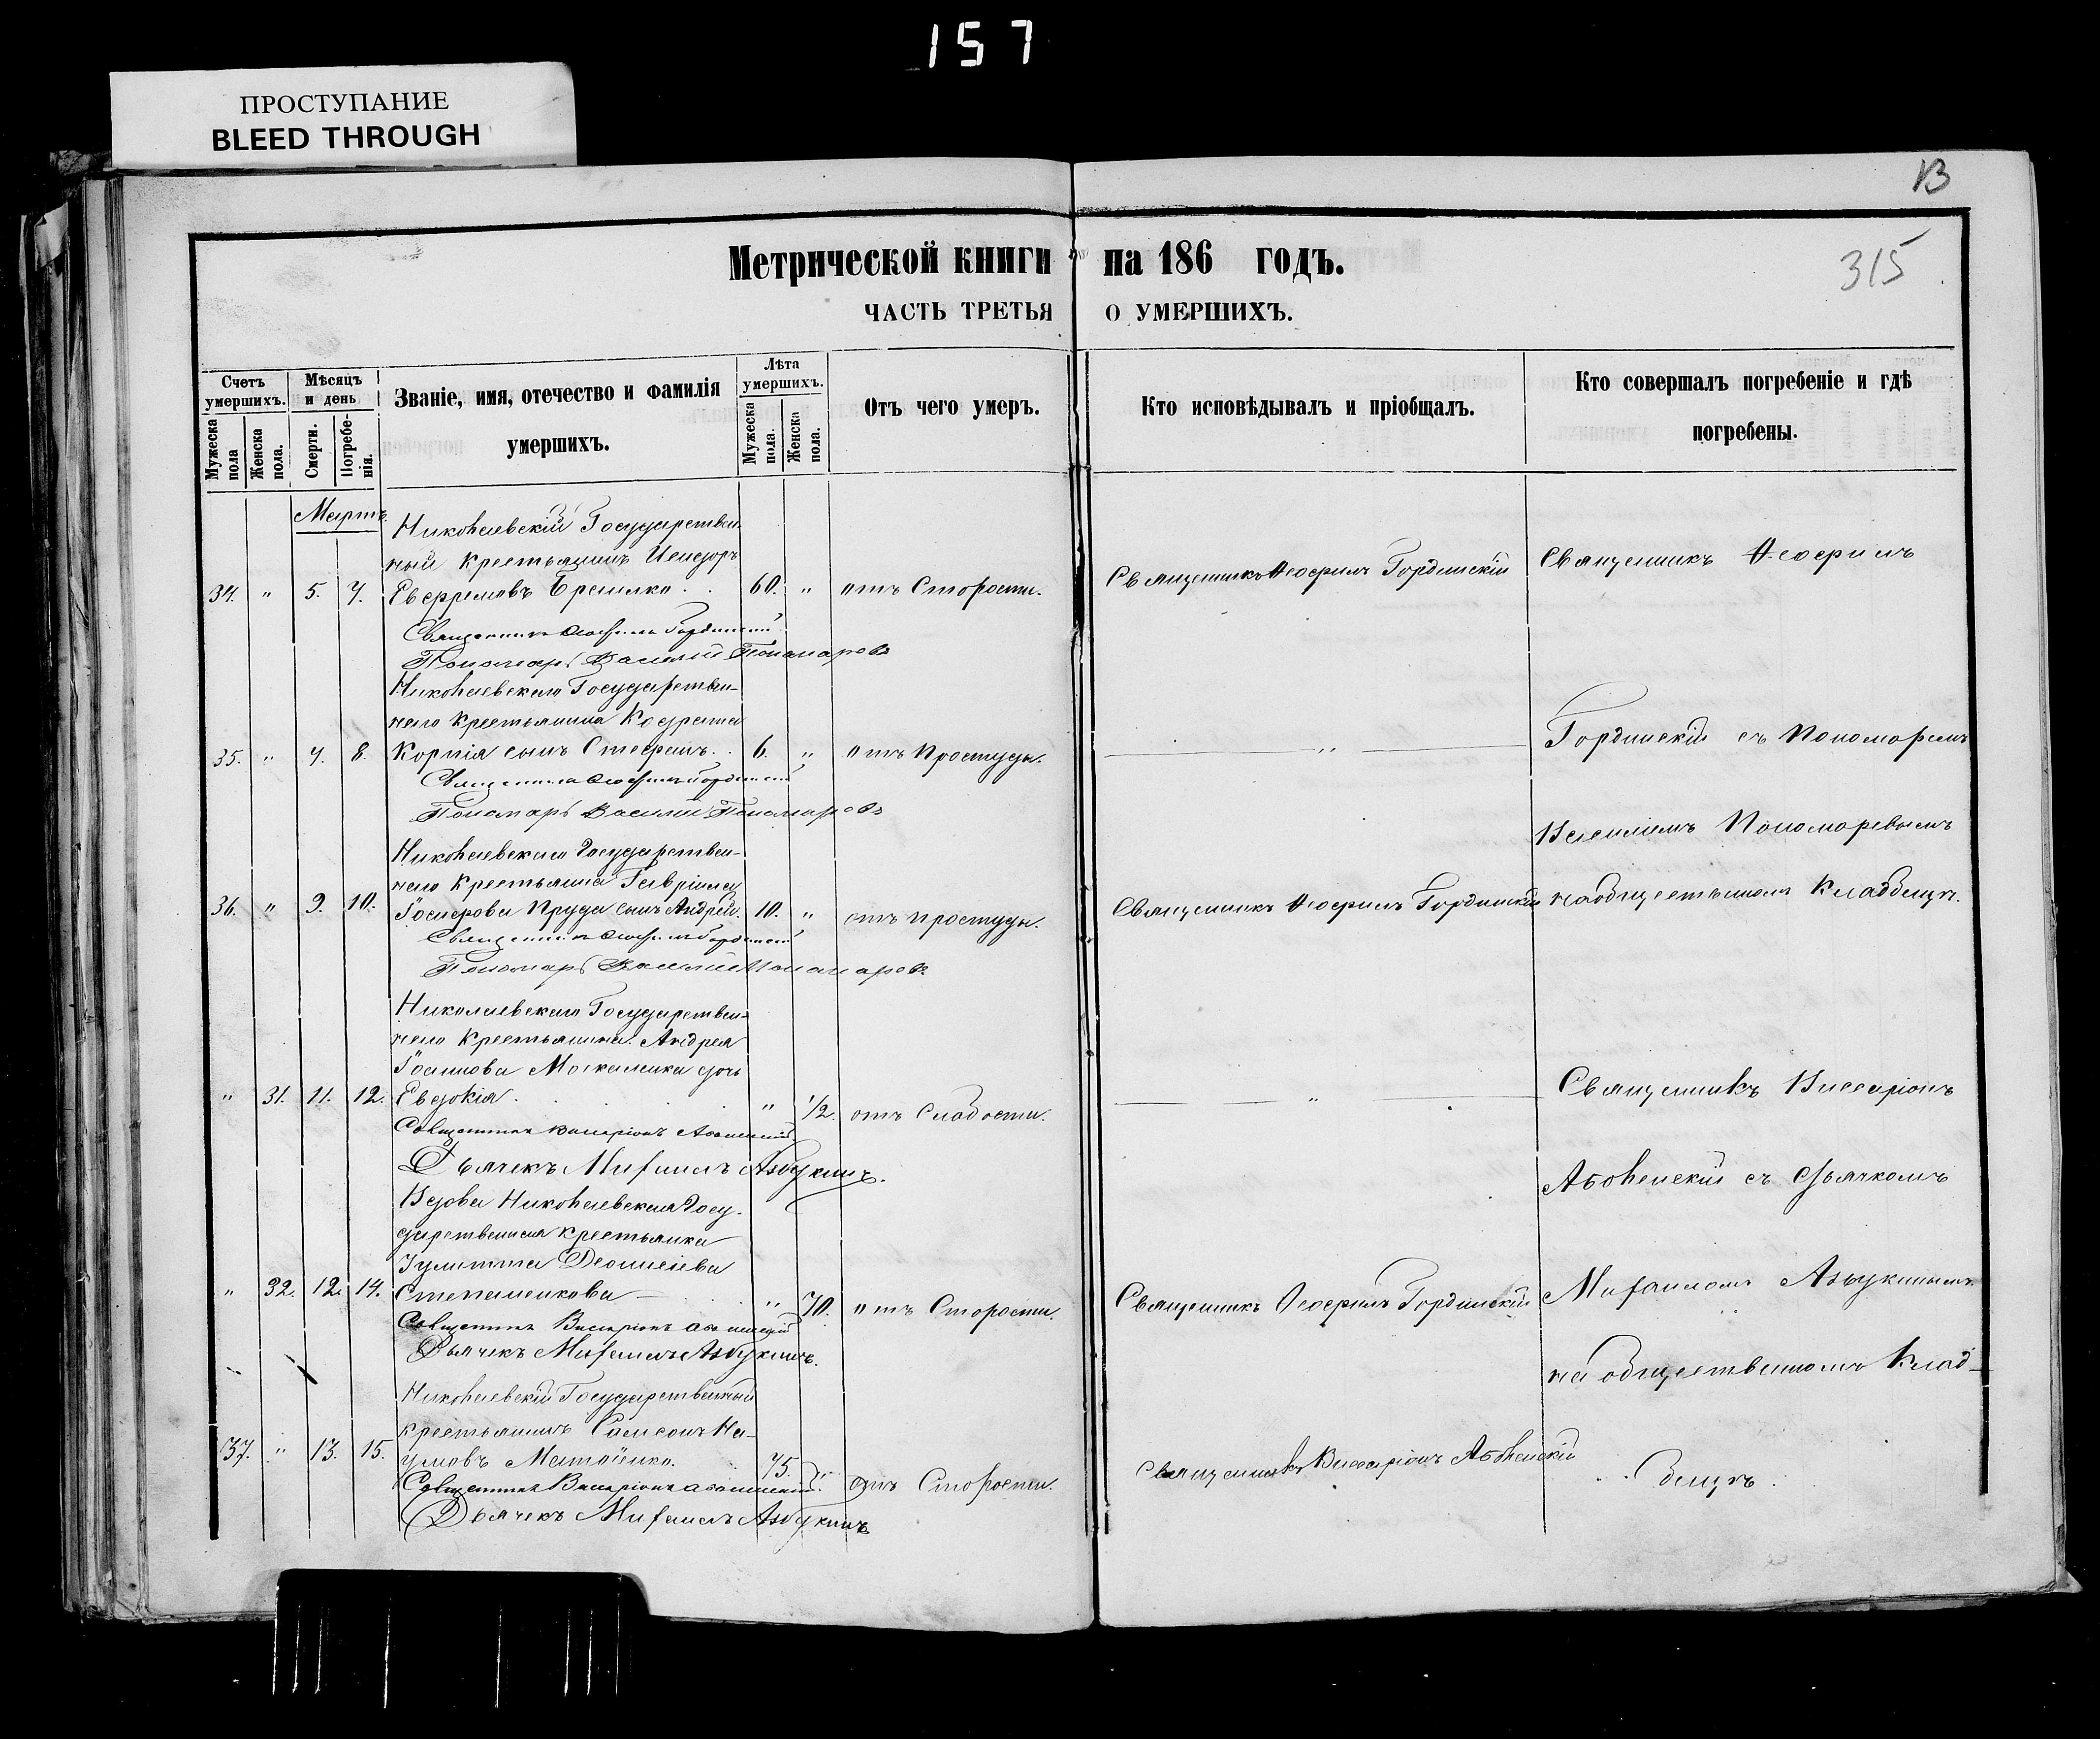 157
ПРОСТУПАНИЕ
BLEED THROUGH
13
315
Метрической книги на 186 годъ.
ЧАСТЬ ТРЕТЬЯ О УМЕРШИХЪ.
Счетъ умершихъ.
Мужеска пола
Женска пола.
Мѣсяцъ и день
Смерти.
Погребенія.
Званіе, имя, отечество и фамилія умершихъ.
Лѣта умершихъ.
Мужеска пола.
Женска пола.
Отъ чего умеръ.
Кто исповѣдывалъ и пріобщалъ.
Кто совершалъ погребеніе и гдѣ погребены.
Мартъ.
Николаевскій Государствен
ный крестьянинъ Исидоръ
34. " 5. 7. Евфремовъ . . 60. " отъ Старости. Священникъ Ѳеофилъ Гординскій Священникъ Ѳеофилъ
Священникъ Ѳеофилъ Гординскій
Пономарь Василий Пономаровъ
Николаевскаго Государствен-
наго крестьянина Кодрата
35. " 7. 8. Корнія сынъ Стефанъ. . 6. " отъ Простуды. " Гординскій съ Пономаремъ
Священникъ Ѳеофилъ Гординскій
Пономарь Василий Пономаровъ
Василіемъ Пономаревымъ
Николаевскаго Государствен-
наго крестьянина Гавріила
36. " 9. 10. Пруда сынъ Андрей. 10. " отъ простуды. Священникъ Ѳеофилъ Гординскій на общественномъ Кладбищѣ.
Священникъ Ѳеофилъ Гординскій
Пономарь Василий Пономаровъ
Николаевскаго Государствен-
наго крестьянина Андрея
Іоаннова Москаленка дочь
" 31. 11. 12. Евдокія . . . " 1/2. отъ Слабости. " Священникъ Виссаріонъ
Священникъ Висаріонъ
Дьячекъ Михаилъ Азбукинъ.
Аболенскій съ дьячкомъ
Вдова Николаевская Госу-
дарственная крестьянка
Іулитта Деонисіева
" 32. 12. 14. Степаненкова " 70. отъ Старости. Священникъ Ѳеофилъ Гординскій Михаиломъ Азбукинымъ
Священникъ Висаріонъ
Дьячекъ Михаилъ Азбукинъ.
на общественномъ Клад-
Николаевскій Государственный
крестьянинъ Самсонъ На-
37. " 13. 15. умовъ 75. " отъ Старости. Священникъ Виссаріонъ Аболенскій бищѣ.
Священникъ Висаріонъ
Дьячекъ Михаилъ Азбукинъ